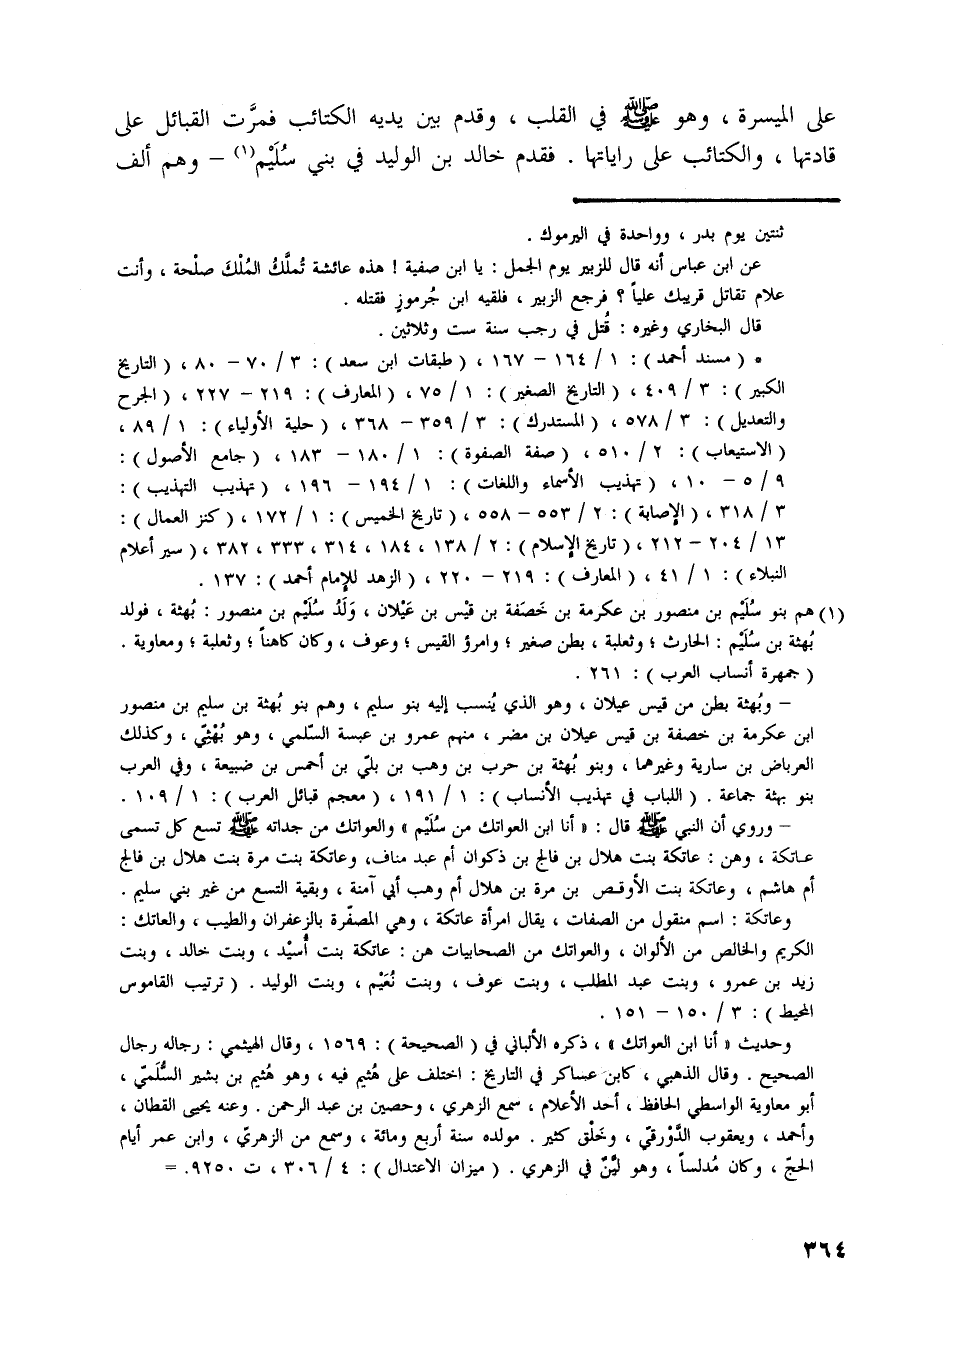 على الميسرة ، وهو ﷺ في القلب ، وقدم بين يديه الكتائب فمرَّت القبائل على
قادتها ، والكتائب على راياتها . فقدم خالد بن الوليد في بني سُلَيْم(١) – وهم ألف
ثنتين يوم بدر ، وواحدة في اليرموك .
عن ابن عباس أنه قال للزبير يوم الجمل : يا ابن صفية ! هذه عائشة تُملَّكُ المُلْكَ صلْحة ، وأنت
علام تقاتل قريبك علياً ؟ فرجع الزبير ، فلقيه ابن جُرموزٍ فقتله .
قال البخاري وغيره : قُتل في رجب سنة ست وثلاثين .
٥ ( مسند أحمد ) : ١ / ١٦٤ – ١٦٧ ، ( طبقات ابن سعد ) : ٣ / ٧٠ – ٨٠ ، ( التاريخ
الكبير ) : ٣ / ٤٠٩ ، ( التاريخ الصغير ) : ١ / ٧٥ ، ( المعارف ) : ٢١٩ – ٢٢٧ ، ( الجرح
والتعديل ) : ٣ / ٥٧٨ ، ( المستدرك ) : ٣ / ٣٥٩ – ٣٦٨ ، ( حلية الأولياء ) : ١ / ٨٩ ،
( الاستيعاب ) : ٢ / ٥١٠ ، ( صفة الصفوة ) : ١ / ١٨٠ – ١٨٣ ، ( جامع الأصول ) :
٩ / ٥ – ١٠ ، ( تهذيب الأسماء واللغات ) : ١ / ١٩٤ – ١٩٦ ، ( تهذيب التهذيب ) :
٣ / ٣١٨ ، ( الإصابة ) : ٢ / ٥٥٣ – ٥٥٨ ، ( تاريخ الخميس ) : ١ / ١٧٢ ، ( كنز العمال ) :
١٣ / ٢٠٤ – ٢١٢ ، ( تاريخ الإسلام ) : ٢ / ١٣٨ ، ١٨٤ ، ٣١٤ ، ٣٣٣ ، ٣٨٢ ، ( سير أعلام
النبلاء ) : ١ / ٤١ ، ( المعارف ) : ٢١٩ – ٢٢٠ ، ( الزهد للإمام أحمد ) : ١٣٧ .
(١) هم بنو سُلَيْم بن منصور بن عكرمة بن خَصَفة بن قيْس بن عَيْلان ، وَلَدُ سُلَيْم بن منصور : بُهثة ، فولد
بُهثة بن سُلَيْم : الحارث ؛ وثعلبة ، بطن صغير ؛ وامرؤ القيس ؛ وعوف ، وكان كاهناً ؛ وثعلبة ؛ ومعاوية .
( جمهرة أنساب العرب ) : ٢٦١ .
– وبُهثة بطن من قيس عيلان ، وهو الذي يُنسب إليه بنو سليم ، وهم بنو بُهثة بن سليم بن منصور
ابن عكرمة بن خصفة بن قيس عيلان بن مضر ، منهم عمرو بن عبسة السّلمي ، وهو بُهْثِيّ ، وكذلك
العرباض بن سارية وغيرهما ، وبنو بُهثة بن حرب بن وهب بن بليّ بن أحمس بن ضبيعة ، وفي العرب
بنو بهثة جماعة . ( اللباب في تهذيب الأنساب ) : ١ / ١٩١ ، ( معجم قبائل العرب ) : ١ / ١٠٩ .
– وروي أن النبي ﷺ قال : « أنا ابن العواتك من سُلَيْم » والعواتك من جداته ﷺ تسع كل تسمى
عـاتكة ، وهن : عاتكة بنت هلال بن فالج بن ذكوان أم عبد مناف، وعاتكة بنت مرة بنت هلال بن فالج
أم هاشم ، وعاتكة بنت الأوقـص بن مرة بن هلال أم وهب أبي آمنة ، وبقية التسع من غير بني سليم .
وعاتكة : اسم منقول من الصفات ، يقال امرأة عاتكة ، وهي المصفّرة بالزعفران والطيب ، والعاتك :
الكريم والخالص من الألوان ، والعواتك من الصحابيات هن : عاتكة بنت أُسيْد ، وبنت خالد ، وبنت
زيد بن عمرو ، وبنت عبد المطلب ، وبنت عوف ، وبنت نُعَيْم ، وبنت الوليد . ( ترتيب القاموس
المحيط ) : ٣ / ١٥٠ – ١٥١ .
وحديث « أنا ابن العواتك » ، ذكره الألباني في ( الصحيحة ) : ١٥٦٩ ، وقال الهيثمي : رجاله رجال
الصحيح . وقال الذهبي ، كابن عساكر في التاريخ : اختلف على هُثيم فيه ، وهو هُثيم بن بشير السُّلَميّ ،
أبو معاوية الواسطي الحافظ ، أحد الأعلام ، سمع الزهري ، وحصين بن عبد الرحمن . وعنه يحيى القطان ،
وأحمد ، ويعقوب الدَّوْرقيّ ، وخَلْق كثير . مولده سنة أربع ومائة ، وسمع من الزهريّ ، وابن عمر أيام
الحجّ ، وكان مُدلساً ، وهو ليّنٌ في الزهري . ( ميزان الاعتدال ) : ٤ / ٣٠٦ ، ت ٩٢٥٠. =
٣٦٤